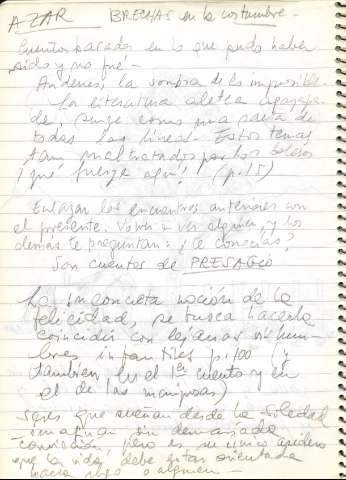 AZAR BRECHAS en la costumbre -
Cuentos basados en lo que pudo haber
sido y no fue -
Andenes, la sombra de lo imposible.
La literatura aletea agazapa-
da, surge como una saeta de
todas las líneas. Estos temas
tan maltratados por los boleros
¡qué fuerza aquí! (p. 15)
Enlazar los encuentros anteriores con
el presente. Volver a ver alguien, y los
demás te preguntan: ¿le conocías?
Son cuentos de PRESAGIO
La inconcreta noción de la
felicidad, se busca hacerla
coincidir con lejanas
infantiles p. 100 (
también en el 1er cuento y en
el de las mariposas)
Seres que sueñan desde la soledad
sin demasiada
convicción, pero es su único asidero
que la vida debe estar orientada
hacia algo o alguien -